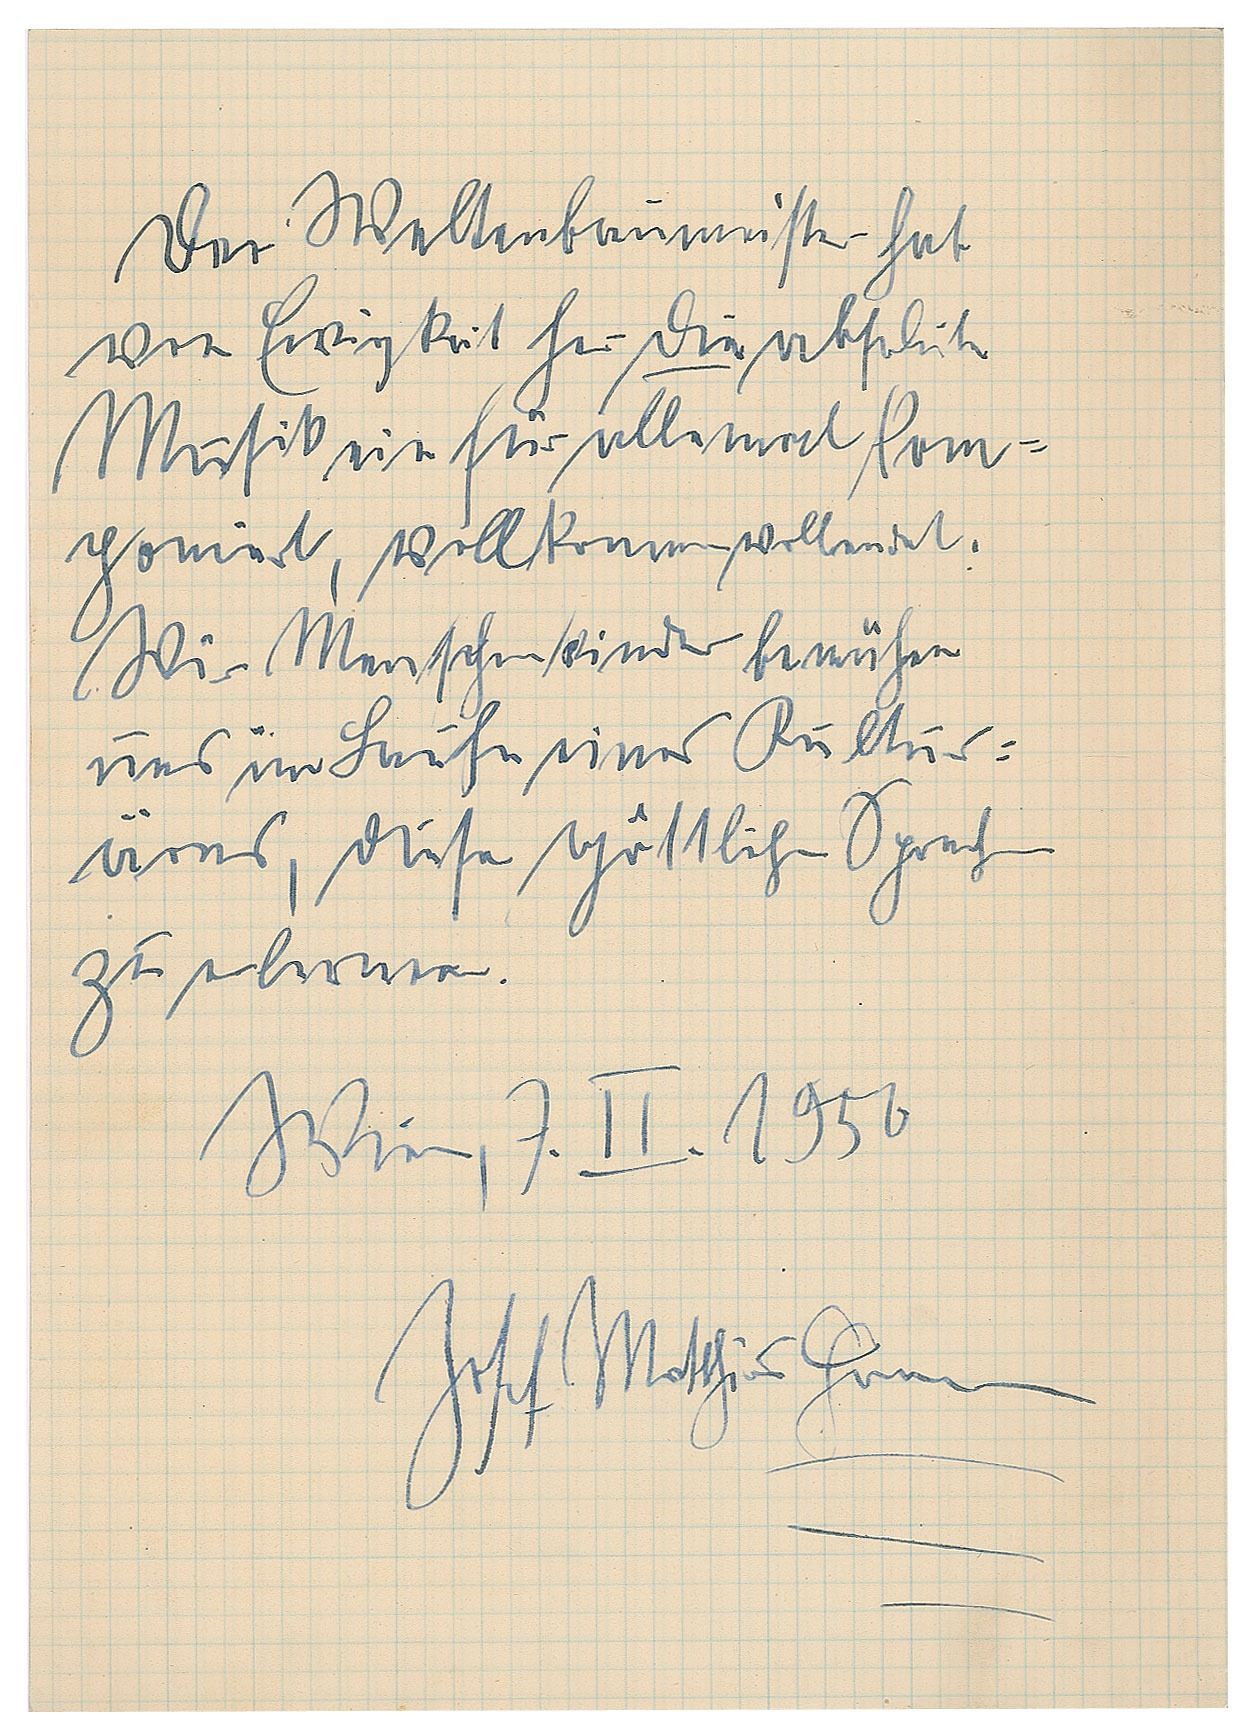 Der Weltenbaumeister hat
von Ewigkeit her die absolute
Musik ein für allemal kom=
poniert, vollkommen vollendet.
Wir Menschenkinder bemühen
uns im Laufe eines Kultur=
äons, diese göttliche Sprache
zu erlernen.
Wien, 7. II. 1956
Josef Matthias Hauer